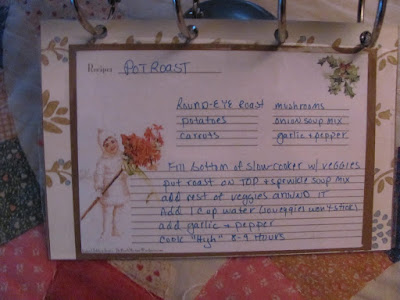 Recipe: POT ROAST
ROUND-EYE ROAST mushrooms
potatoes onion soup mix
carrots garlic + pepper
Fill bottom of slow-cooker w/ veggies
put roast on TOP + sprinkle soup mix
add rest of veggies around it
Add 1 C of water (so veggies won't stick)
add garlic + pepper
Cook "High" 8-9 Hours